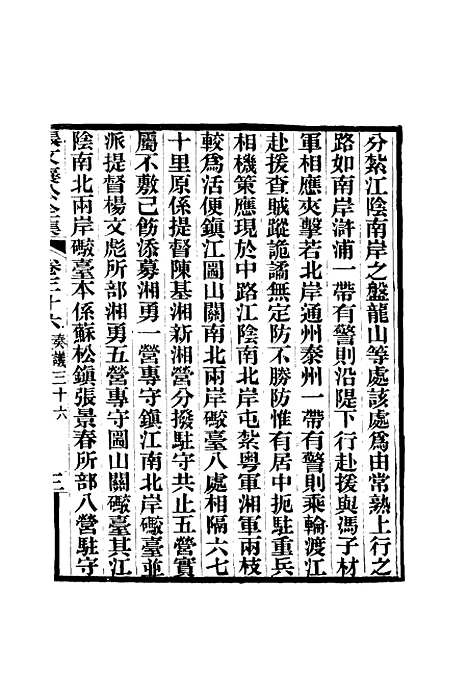 分紮江陰南岸之盤龍山等處該處爲由常熟上行之
路如南岸滸浦一帶有警則沿隄下行赴援與馮子材
軍相應夾擊若北岸通州泰州一帶有警則乘輪渡江
赴援查賊蹤詭譎無定防不勝防惟有居中扼駐重兵
相機策應現於中路江陰南北岸屯紮粵軍湘軍兩枝
較爲活便鎮江圖山關南北兩岸礮臺八處相隔六七
十里原係提督陳基湘新湘營分撥駐守共止五營實
屬不敷已飭添募湘勇一營專守鎮江南北岸礮臺並
派提督楊文彪所部湘勇五營專守圖山關礮臺其江
陰南北兩岸礮臺本係蘇松鎮張景春所部八營駐守
張文襄公全集 卷三十六 奏議三十六 三